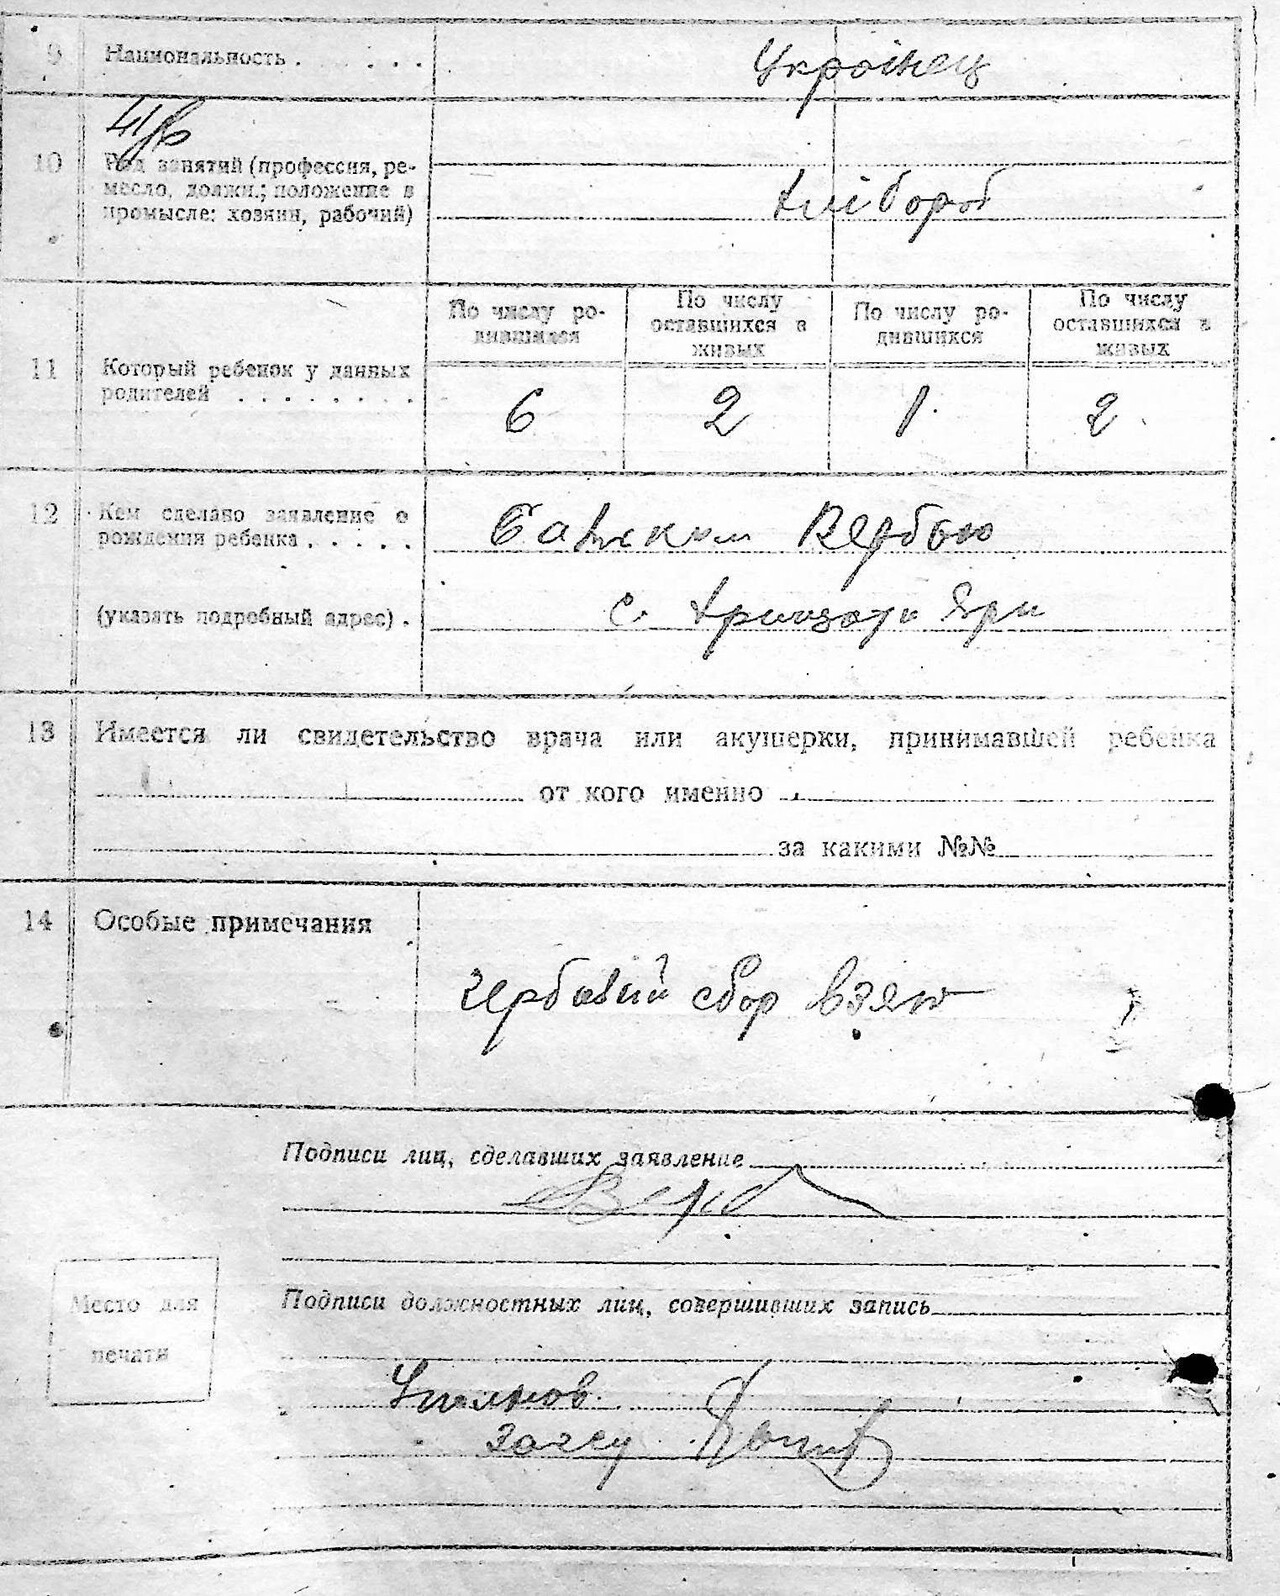 9 Национальность . . . . . . Українец
10 Род занятий (профессия, ре-
месло, должн.; положение в
промысле: хозяин, рабочий)
хлібороб
По числу ро-
дившихся
По числу
оставшихся в
живых
По числу ро-
дившихся
По числу
оставшихся в
живых
11 Который ребенок у данных
родителей . . . . . . . .
6 2 1 2
12 Кем сделано заявление о
рождении ребенка . . . . . Батьком Вербою
(указать подробный адрес) . с. Яри
13 Имеется ли свидетельство врача или акушерки, принимавшей ребенка
от кого именно
за какими №№
14 Особые примечания
гербовий сбор взят
Подписи лиц, сделавших заявление
Верб
Место для
печати
Подписи должностных лиц, совершивших запись
Уполнов.
загсу